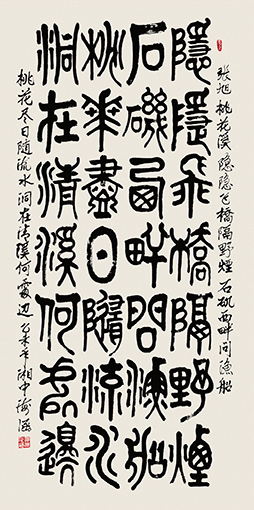 张旭桃花溪隐隐飞橋隔野煙石矶西畔问渔船
隱隱飛橋隔野煙
石磯西畔問漁船
桃華盡日隨流水
洞在清溪何處邊
桃花尽日随流水洞在清溪何處边乙未年湘中